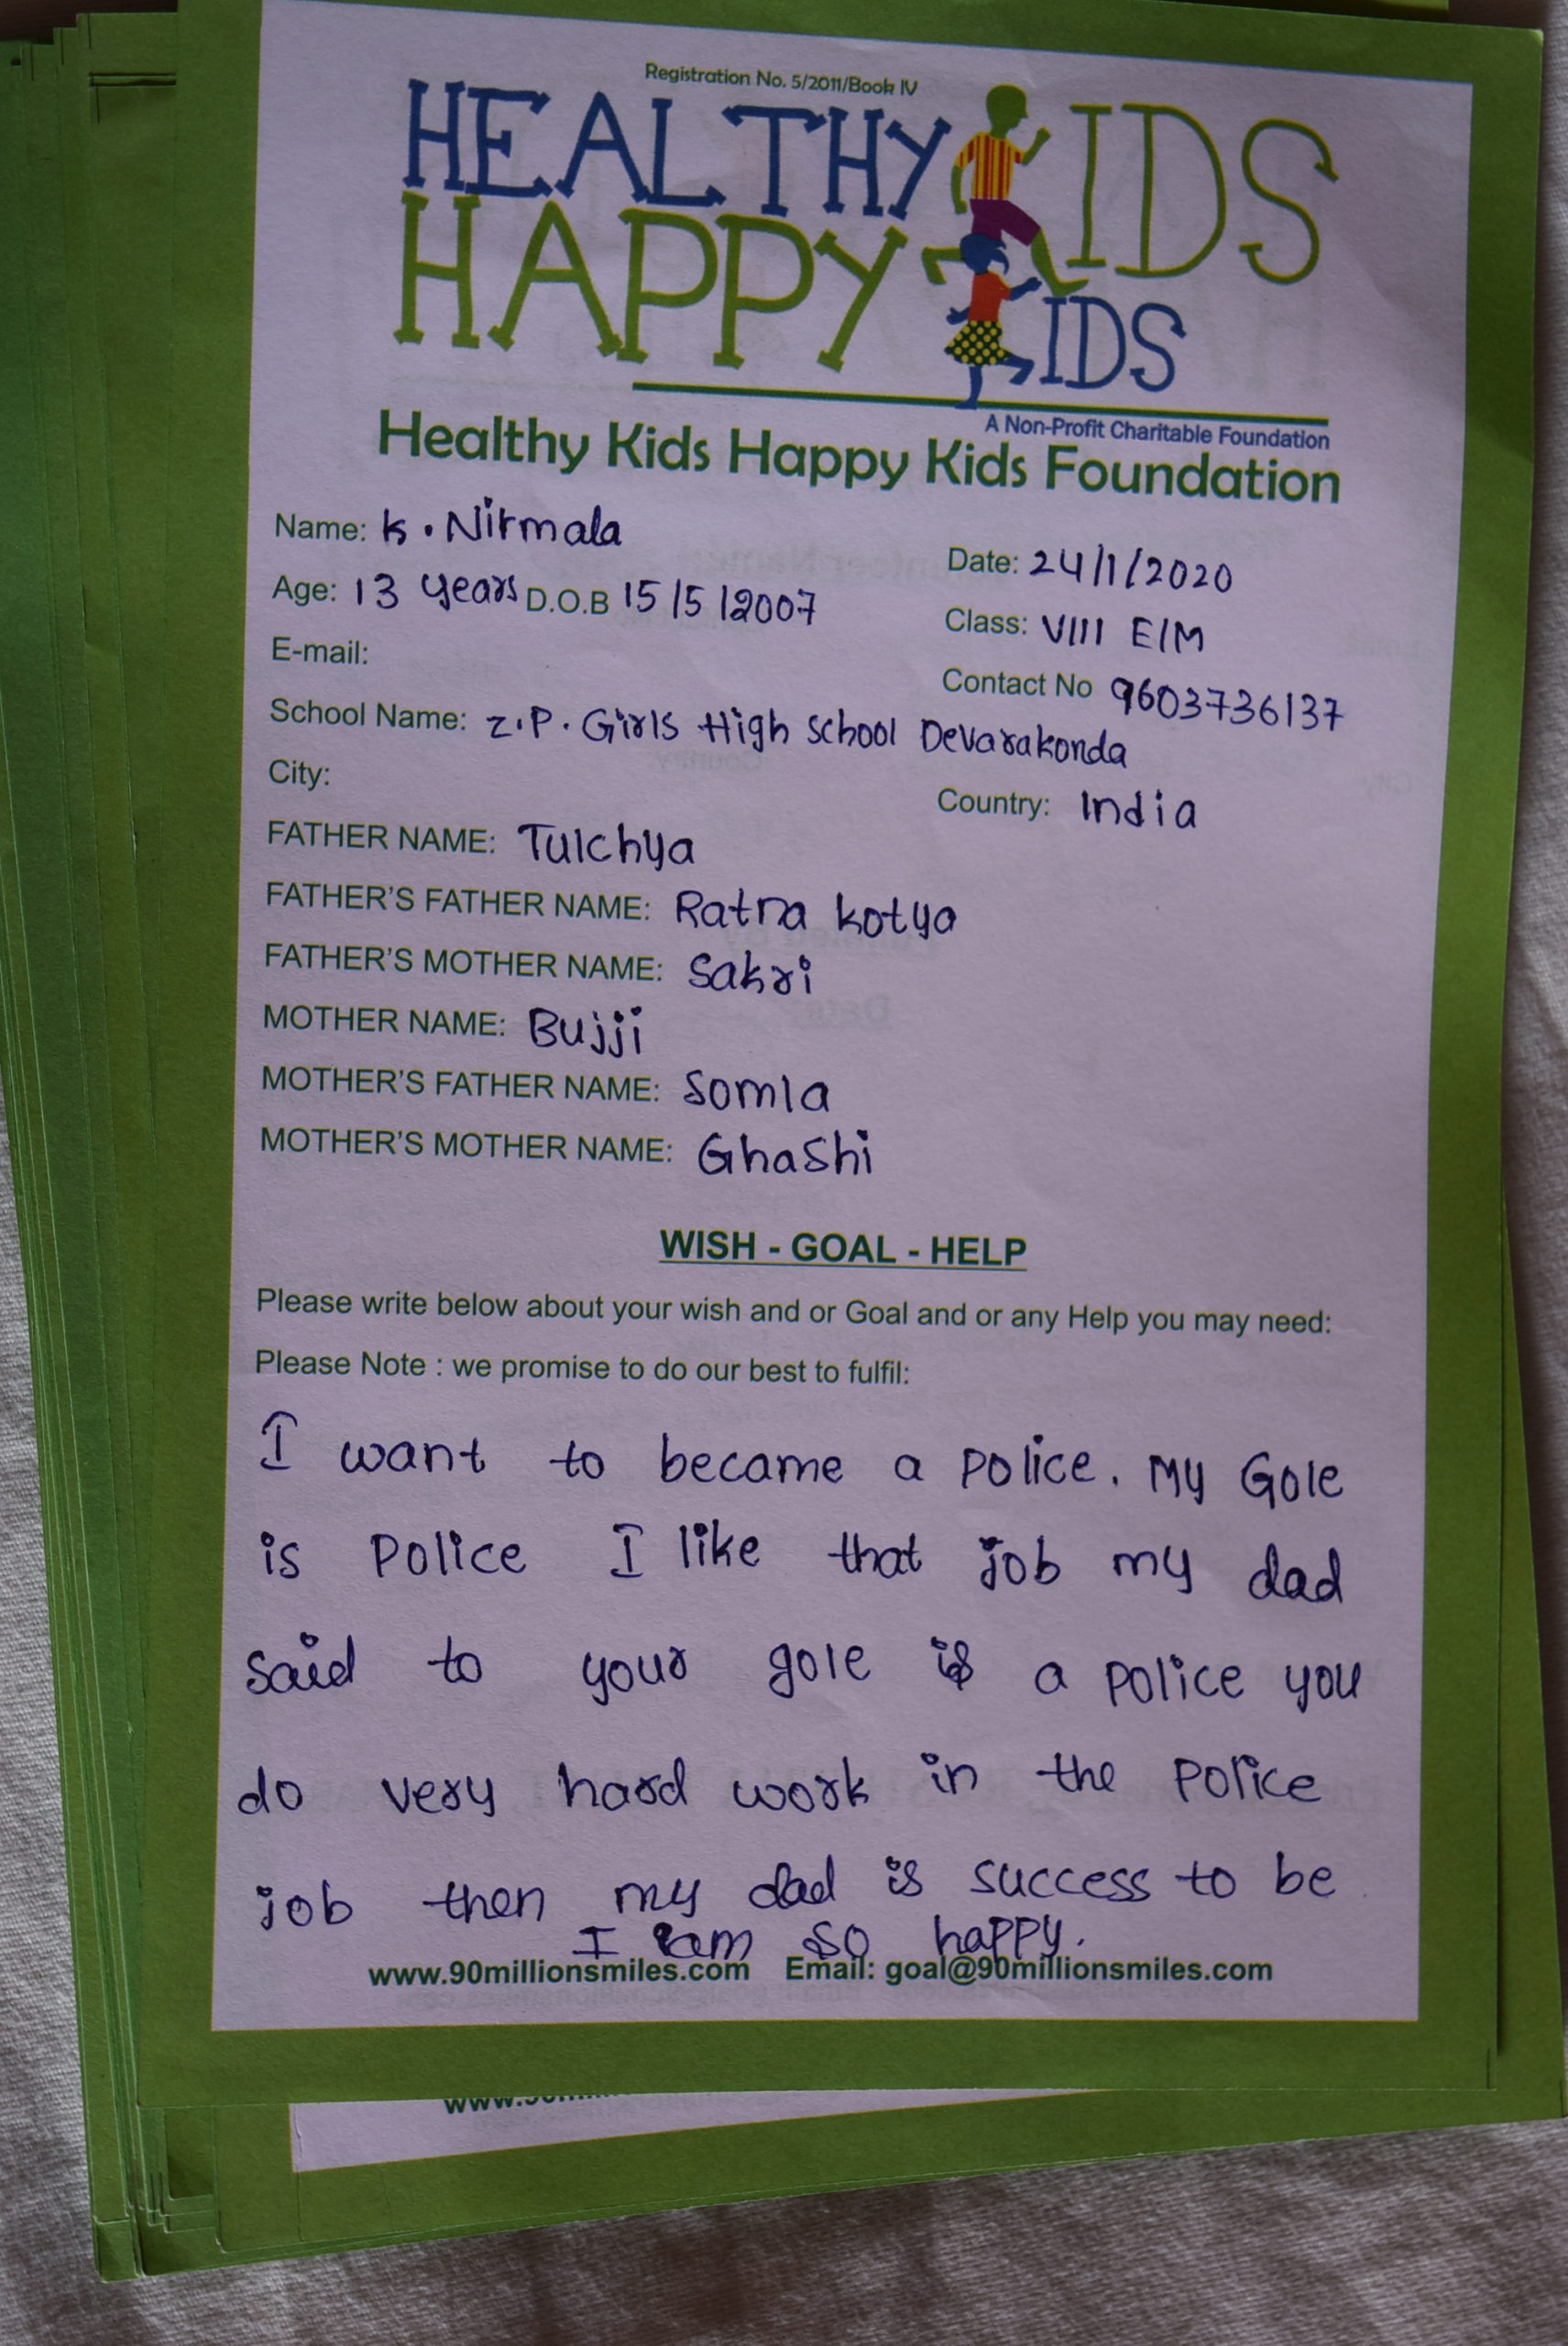 Registration No. 5/2011/Book IV
HEALTHY KIDS
HAPPY KIDS
A Non-Profit Charitable Foundation
Healthy Kids Happy Kids Foundation
Name: K. Nirmala
Date: 24/1/2020
Age: 13 years D.O.B 15/5/2007
Class: VIII E/M
E-mail:
Contact No 9603736137
School Name: Z.P. Girls High School Devarakonda
City:
Country: India
FATHER NAME: Tulchya
FATHER'S FATHER NAME: Ratna kotya
FATHER'S MOTHER NAME: Sakri
MOTHER NAME: Bujji
MOTHER'S FATHER NAME: Somla
MOTHER'S MOTHER NAME: Ghashi
WISH - GOAL - HELP
Please write below about your wish and or Goal and or any Help you may need:
Please Note : we promise to do our best to fulfil:
I want to became a police. My Gole
is Police I like that job my dad
said to your gole is a police you
do very hard work in the police
job then my dad is success to be
I am so happy.
www.90millionsmiles.com Email: goal@90millionsmiles.com